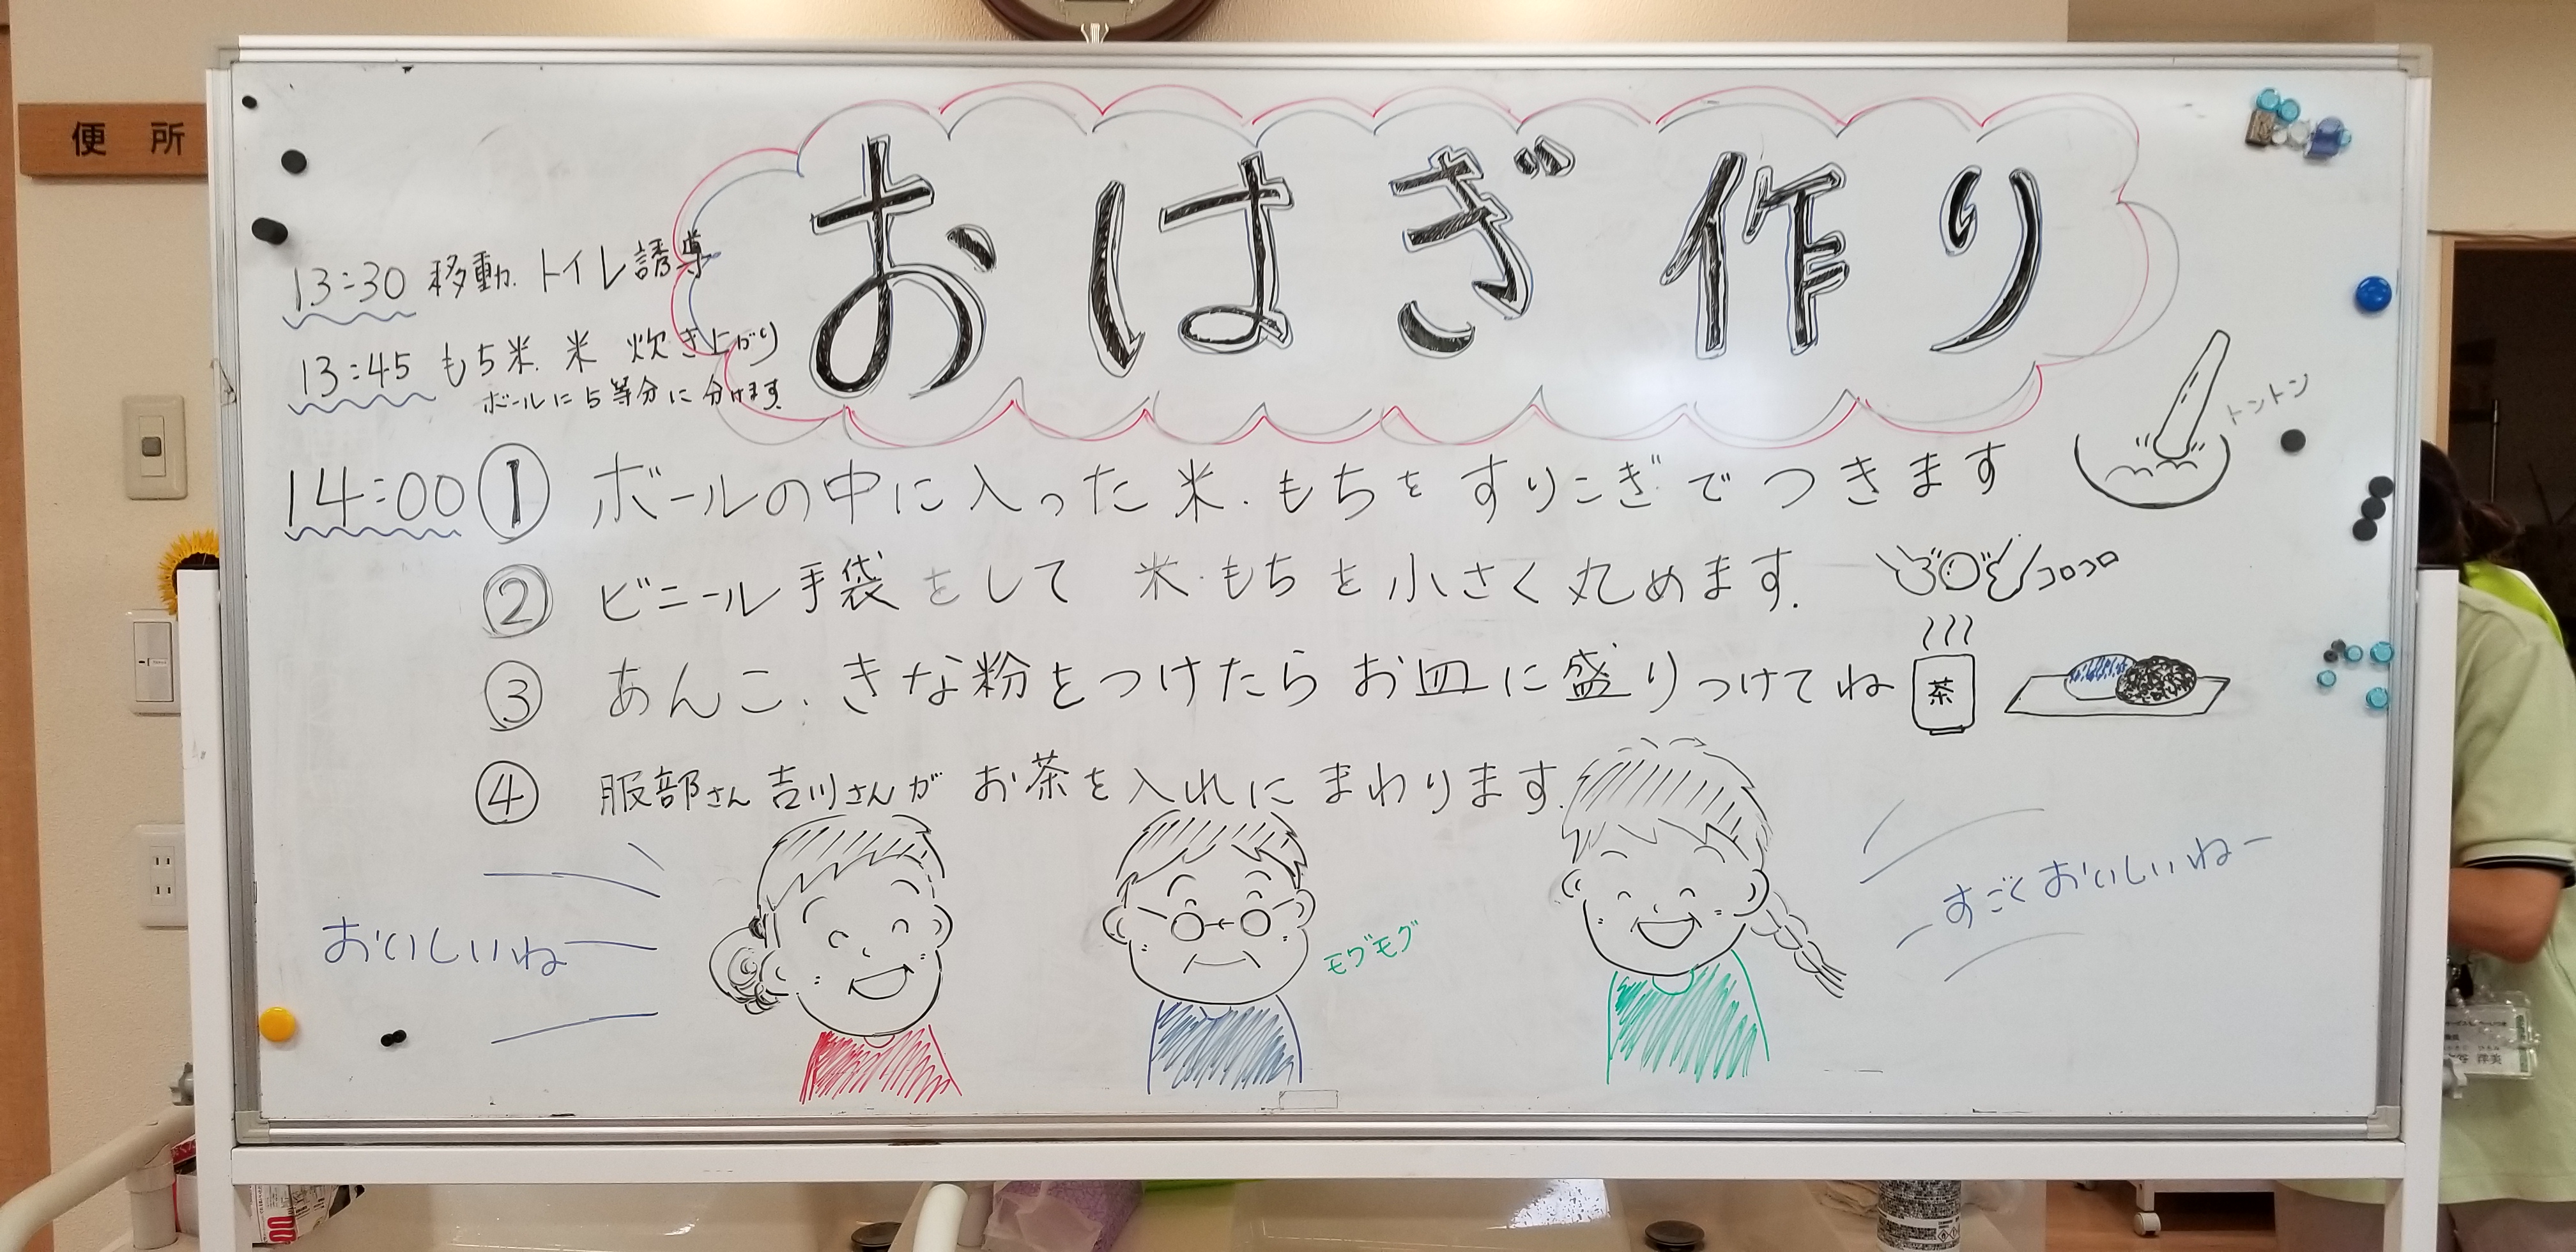 便所
おはぎ作り
13:30 移動. トイレ誘導
13:45 もち米. 米 炊き上がり
ボールに5等分に分けます.
トントン
14:00 ① ボールの中に入った米.もちをすりこぎでつきます
② ビニール手袋をして 米.もちを小さく丸めます.
コロコロ
③ あんこ.きな粉をつけたらお皿に盛りつけてね
茶
④ 服部さん吉川さんが お茶を入れにまわります.
おいしいねー
モグモグ
すごくおいしいねー